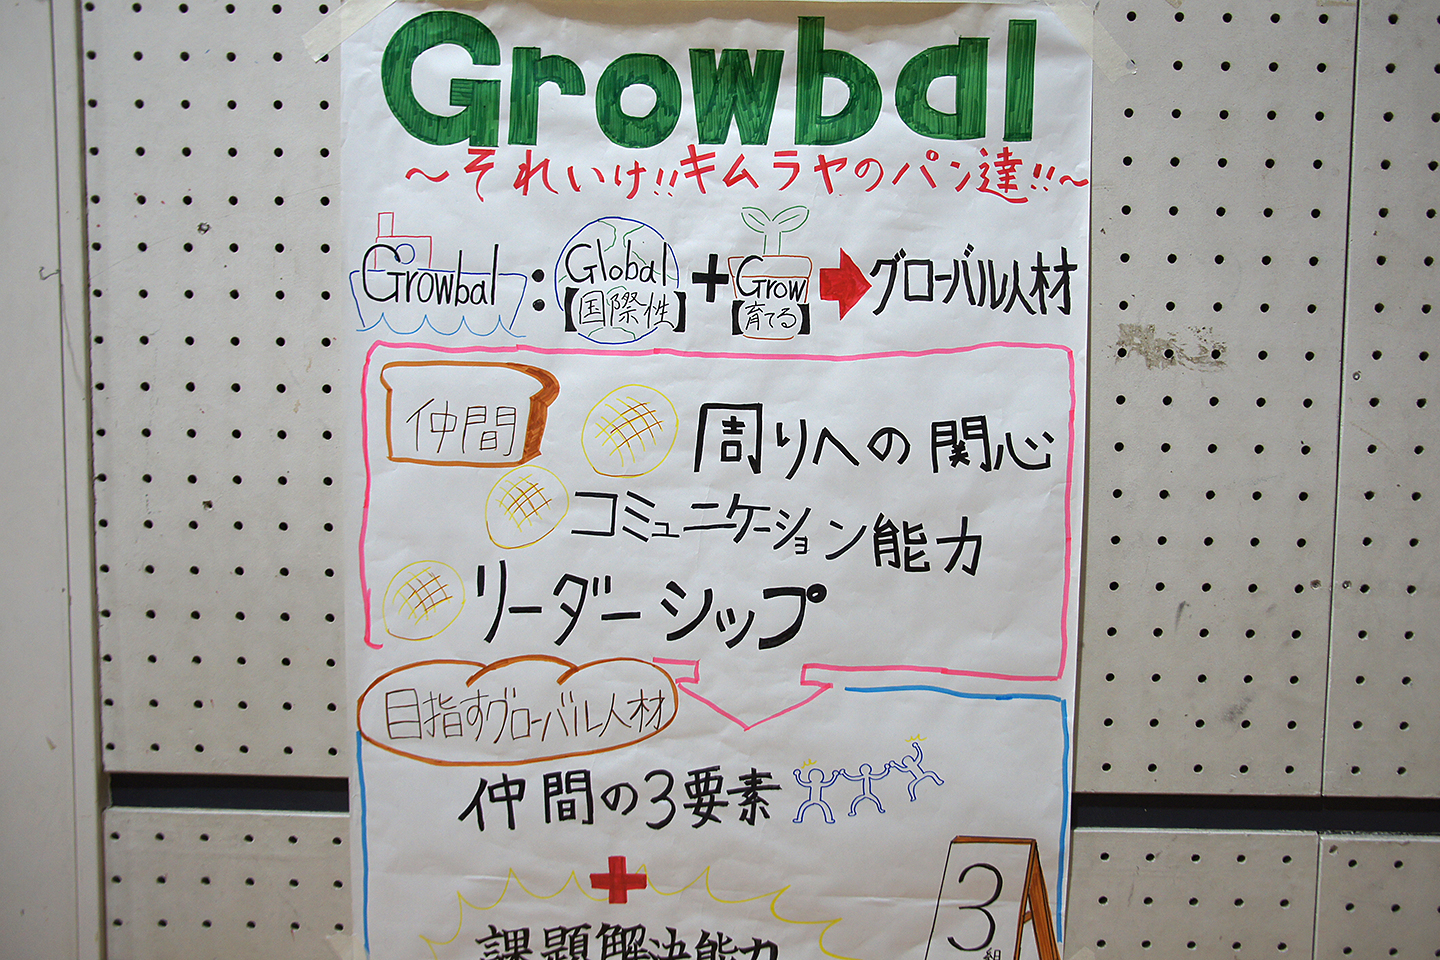 Growbal
～それいけ!!キムラヤのパン達!!～
Growbal：Global【国際性】+Grow【育てる】➡グローバル人材
仲間
周りへの関心
コミュニケーション能力
リーダーシップ
目指すグローバル人材
仲間の3要素
+
課題解決能力
3組